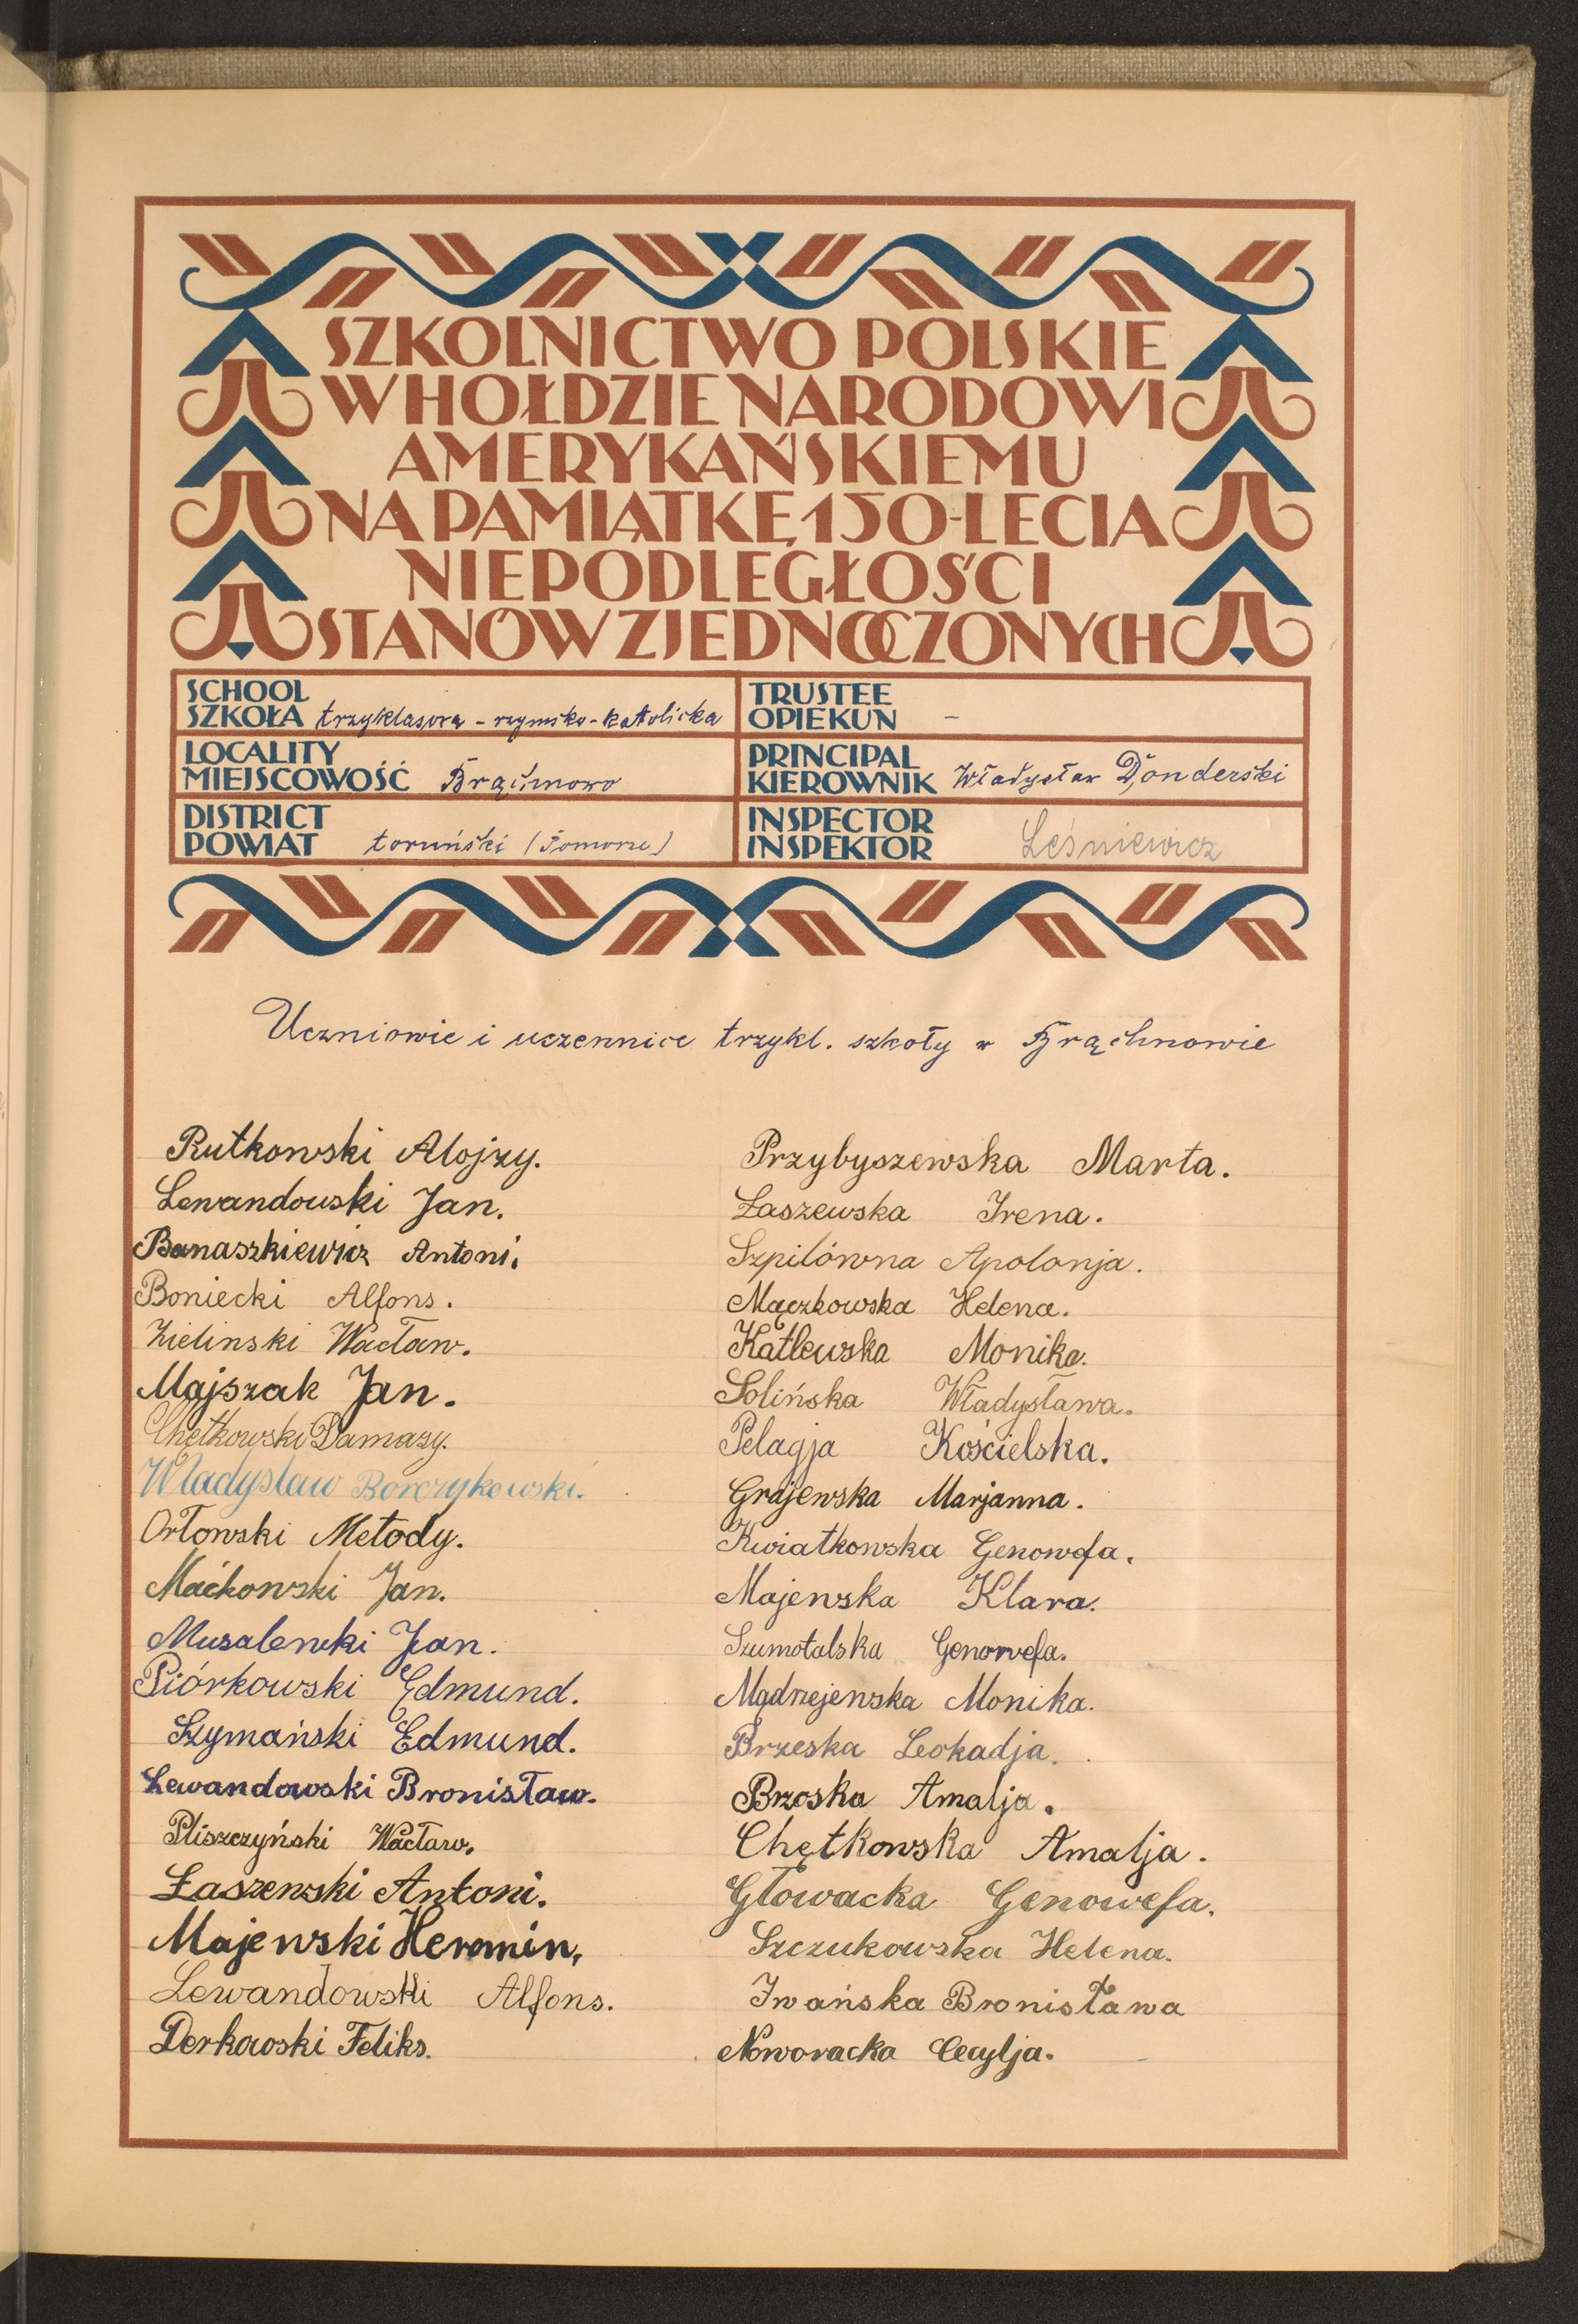 SZKOLNICTWO POLSKIE
W HOŁDZIE NARODOWI
AMERYKAŃSKIEMU
NA PAMIĄTKĘ 150-LECIA
NIEPODLEGŁOŚCI
STANÓW ZJEDNOCZONYCH
SCHOOL
SZKOŁA trzyklasowa - rzymsko-katolicka
TRUSTEE
OPIEKUN -
LOCALITY
MIEJSCOWOŚĆ Brąchnowo
PRINCIPAL
KIEROWNIK Władysław Donderski
DISTRICT
POWIAT toruński (Pomorze)
INSPECTOR
INSPEKTOR Leśniewicz
Uczniowie i uczennice trzykl. szkoły w Brąchnowie
Rutkowski Alojzy.
Lewandowski Jan.
Banaszkiewicz Antoni.
Boniecki Alfons.
Zielinski Wacław.
Majszak Jan.
Chętkowski Damazy.
Wladyslaw Borczykowski.
Orłowski Metody.
Maćkowski Jan.
Musalewki Jan.
Piórkowski Edmund.
Szymański Edmund.
Lewandowski Bronisław.
Pliszczyński Wacław.
Łaszewski Antoni.
Majewski Heromin.
Lewandowski Alfons.
Derkowski Feliks.
Przybyszewska Marta.
Łaszewska Irena.
Szpilówna Apolonja.
Mączkowska Helena.
Katlewska Monika.
Solińska Władysława.
Pelagja Kościelska.
Grajewska Marjanna.
Kwiatkowska Genowefa.
Majewska Klara.
Szumotalska Genowefa.
Mądrzejewska Monika.
Brzeska Leokadja.
Brzoska Amalja.
Chętkowska Amalja.
Głowacka Genowefa.
Szczukowska Helena.
Iwańska Bronisława
Noworacka Cecylja.